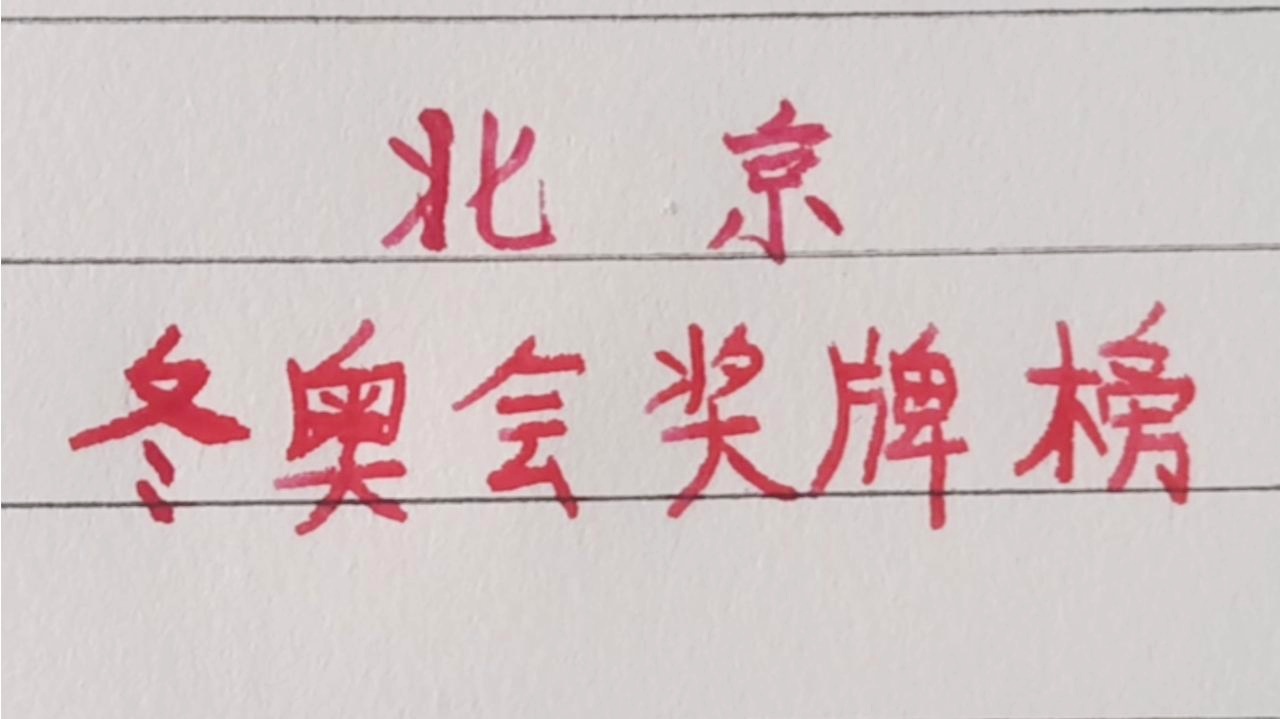 北京
冬奥会奖牌榜